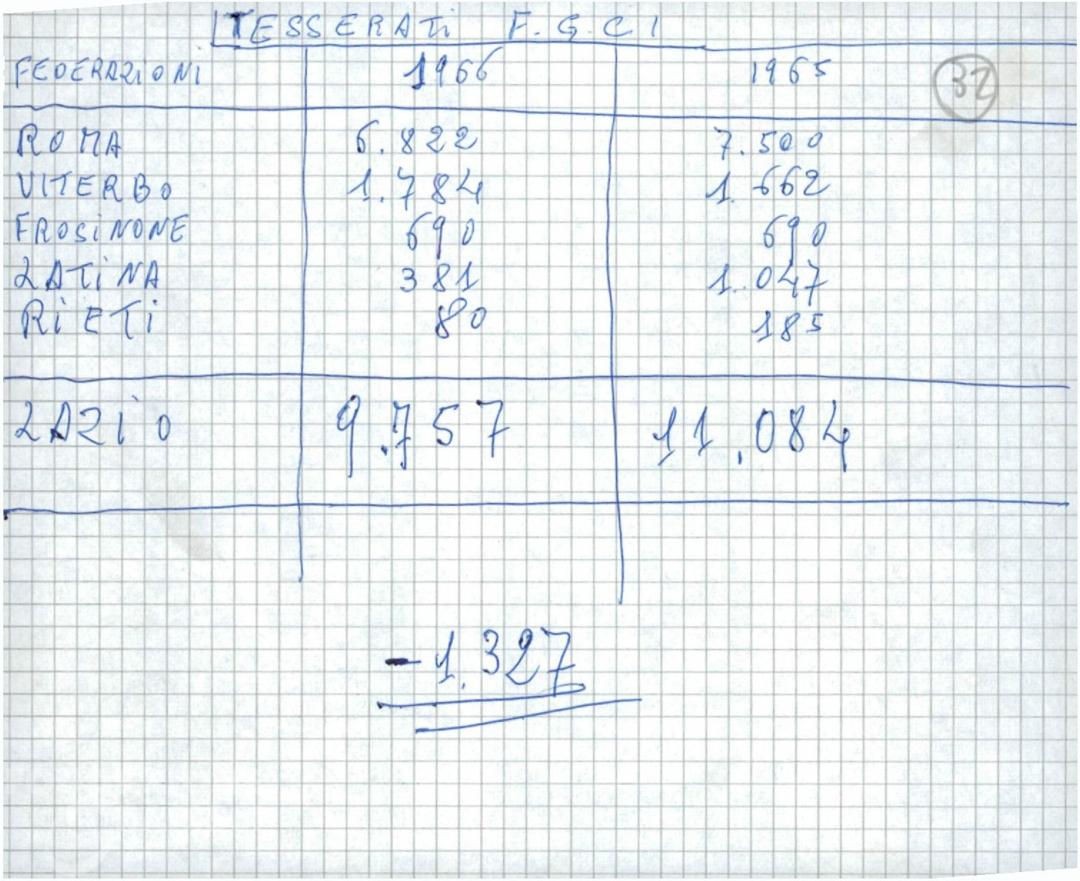 TESSERATI F.G.C.I
FEDERAZIONI 1966 1965 32
ROMA 6.822 7.500
VITERBO 1.784 1.662
FROSINONE 690 690
LATINA 381 1.047
RIETI 80 185
LAZIO 9.757 11.084
- 1.327